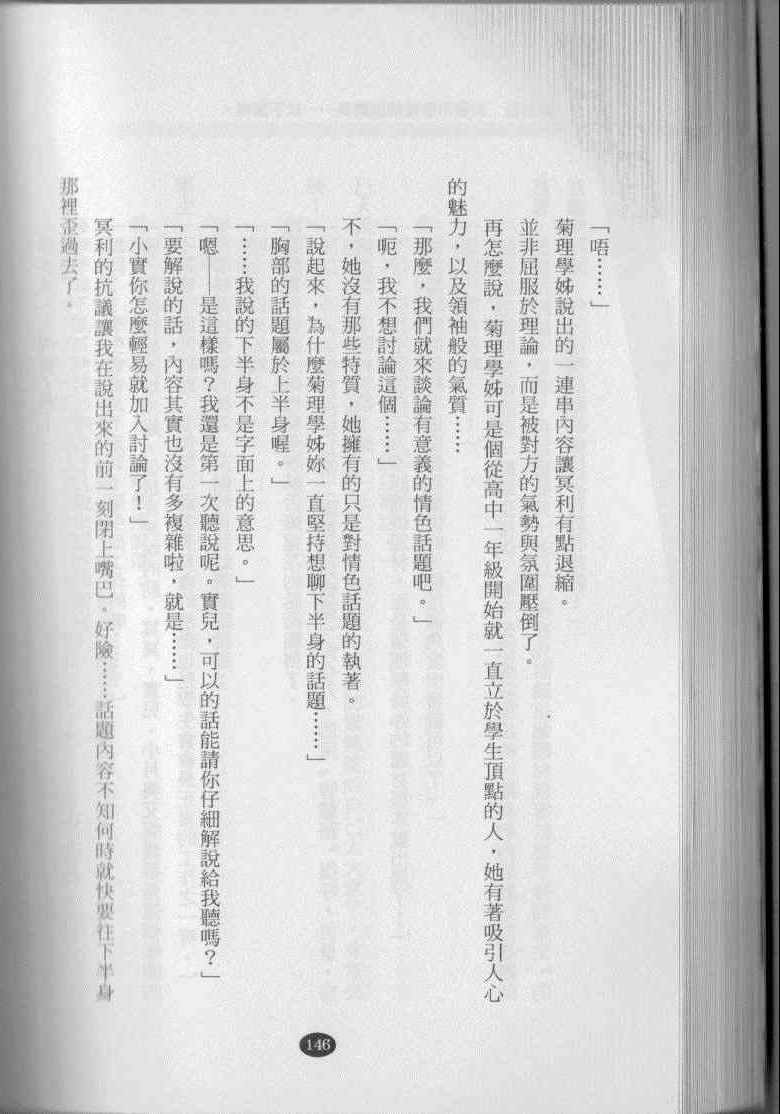 「唔……」
菊理學姊說出的一連串內容讓冥利有點退縮。
並非屈服於理論，而是被對方的氣勢與氛圍壓倒了。
再怎麼說，菊理學姊可是個從高中一年級開始就一直立於學生頂點的人，她有著吸引人心
的魅力，以及領袖般的氣質……
「那麼，我們就來談論有意義的情色話題吧。」
「呃，我不想討論這個……」
不，她沒有那些特質，她擁有的只是對情色話題的執著。
「說起來，為什麼菊理學姊妳一直堅持想聊下半身的話題……」
「胸部的話題屬於上半身喔。」
「……我說的下半身不是字面上的意思。」
「嗯——是這樣嗎？我還是第一次聽說呢。實兒，可以的話能請你仔細解說給我聽嗎？」
「要解說的話，內容其實也沒有多複雜啦，就是……」
「小實你怎麼輕易就加入討論了！」
冥利的抗議讓我在說出來的前一刻閉上嘴巴。好險……話題內容不知何時就快要往下半身
那裡歪過去了。
146